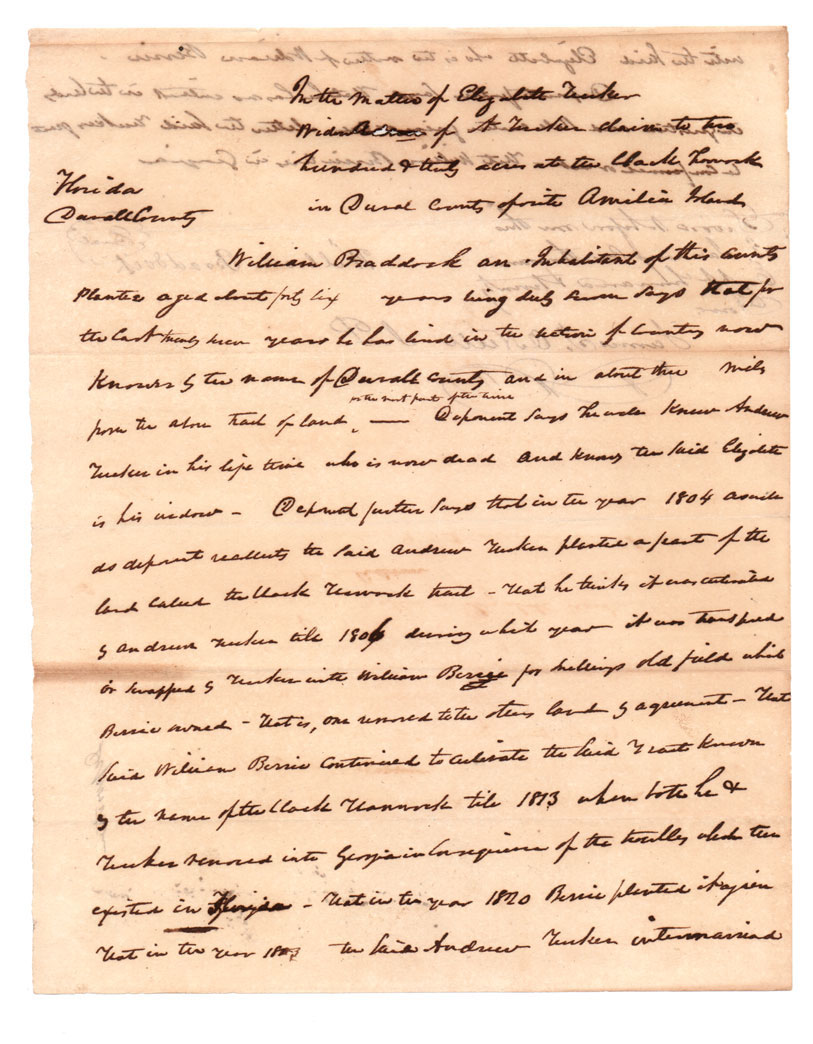 In the Matter of Elizabeth Tucker
Widow of A Tucker claim to two
hundred & thirty acres at the Black hammock
in Duval County oposite Amilia Island
Florida
Duvall County
William Braddock an Inhabitant of this County
Planter aged about forty six years being duly sworn says that for
the last twenty seven years he has lived in the section of Country now
Known by the name of Duvall County and in about three mils
from the above tract of land, for the most part of the time — Deponent says he well Knew Andrew
Tucker in his life time who is now dead and Knows the said Elizabeth
is his widow – Deponent further says that in the year 1804 as well
as deponent recollects the said Andrew Tucker planted a part of the
land called the Black Hammock tract – that he thinks it was cultivated
by Andrew Tucker till 1806 during which year it was transfered
or swapped by Tucker with William Berrie for old field which
Berrie owned – that is, one removed to the others land by agreement – that
said William Berrie continued to cultivate the said Tract Known
by the name of the Black Hammock till 1813 when both he &
Tucker removed into Georgia in Consequence of the troubles which then
existed in Florida – that in the year 1820 Berrie planted it again
that in the year the said Andrew Tucker intermarried